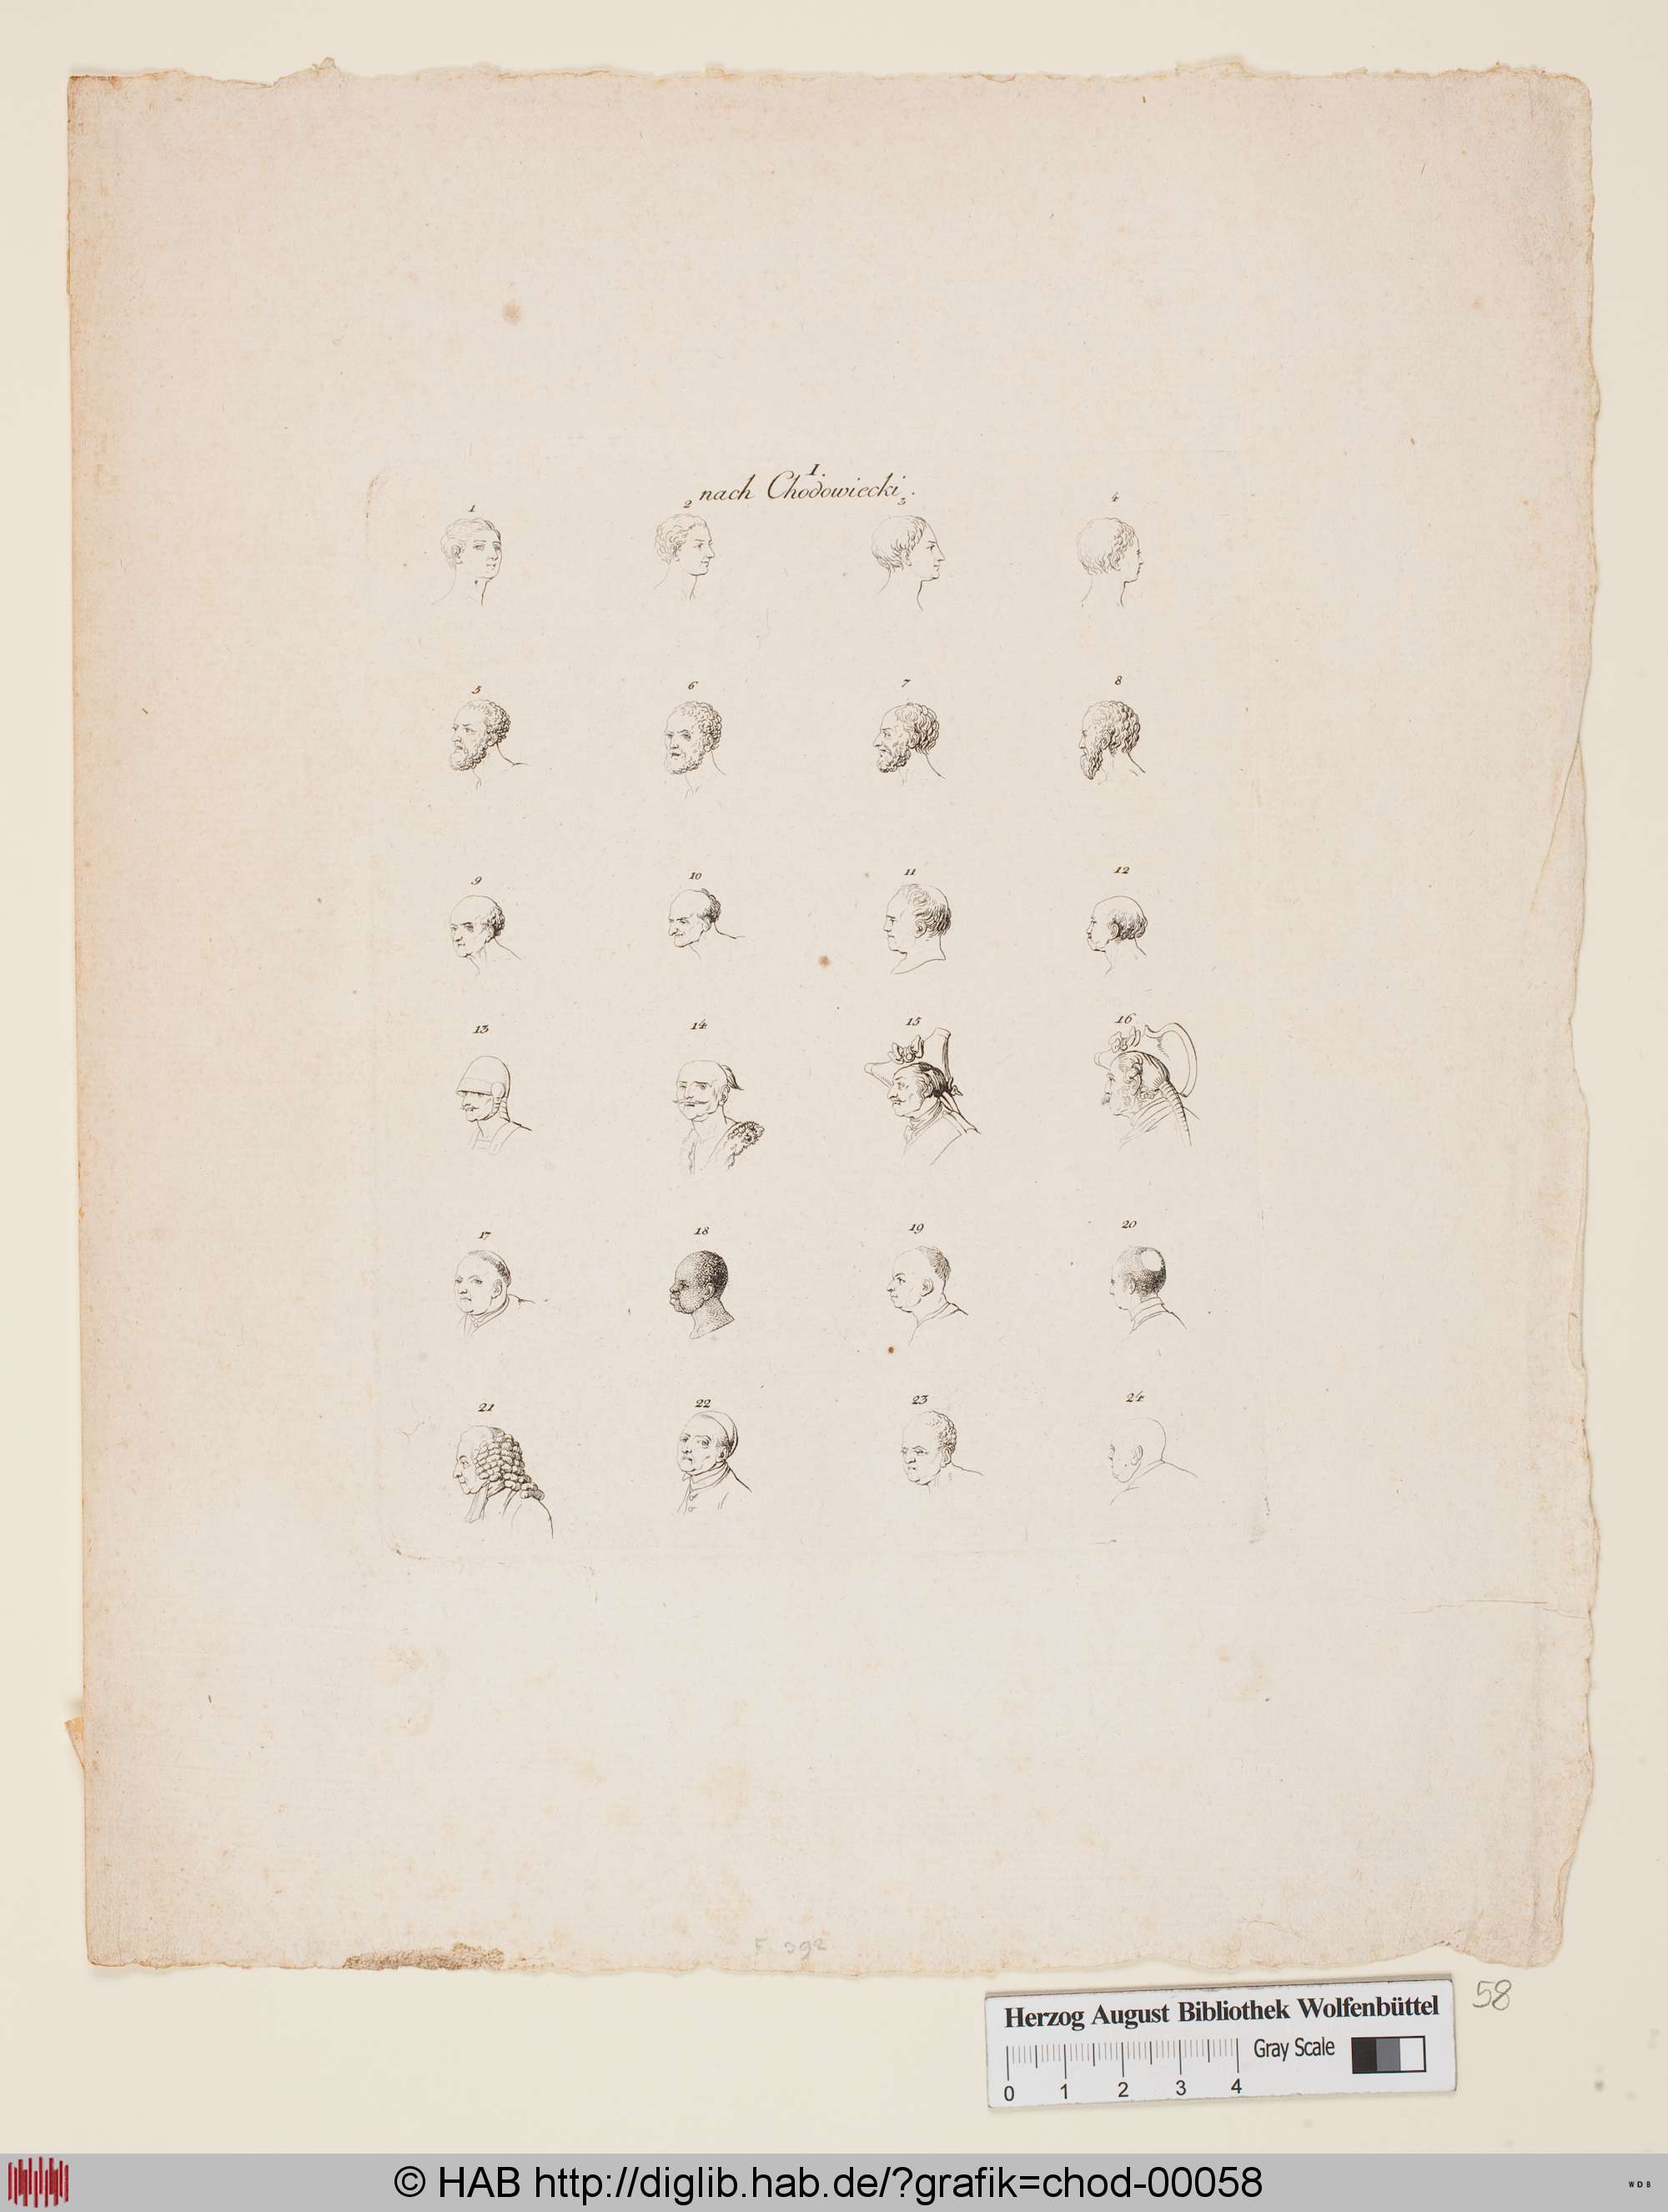 I.
nach Chodowiecki.
1 2 3 4
5 6 7 8
9 10 11 12
13 14 15 16
17 18 19 20
21 22 23 24
F. 392
58
Herzog August Bibliothek Wolfenbüttel
Gray Scale
0 1 2 3 4
© HAB http://diglib.hab.de/?grafik=chod-00058
WDB